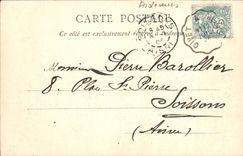 Ardennes
CARTE POSTALE
Ce côté est exclusivement réservé à l'adresse
GIVET
Monsieur Pierre Barollier
8 Place St Pierre
Soissons
(Aisne)